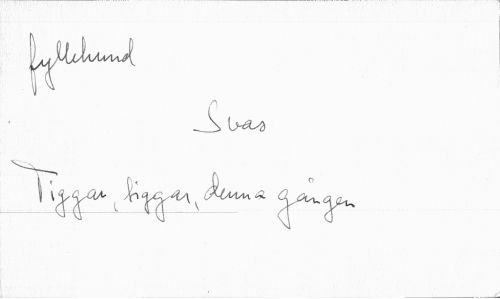 fyllehund
Svas
Tiggar, tiggar, denna gången